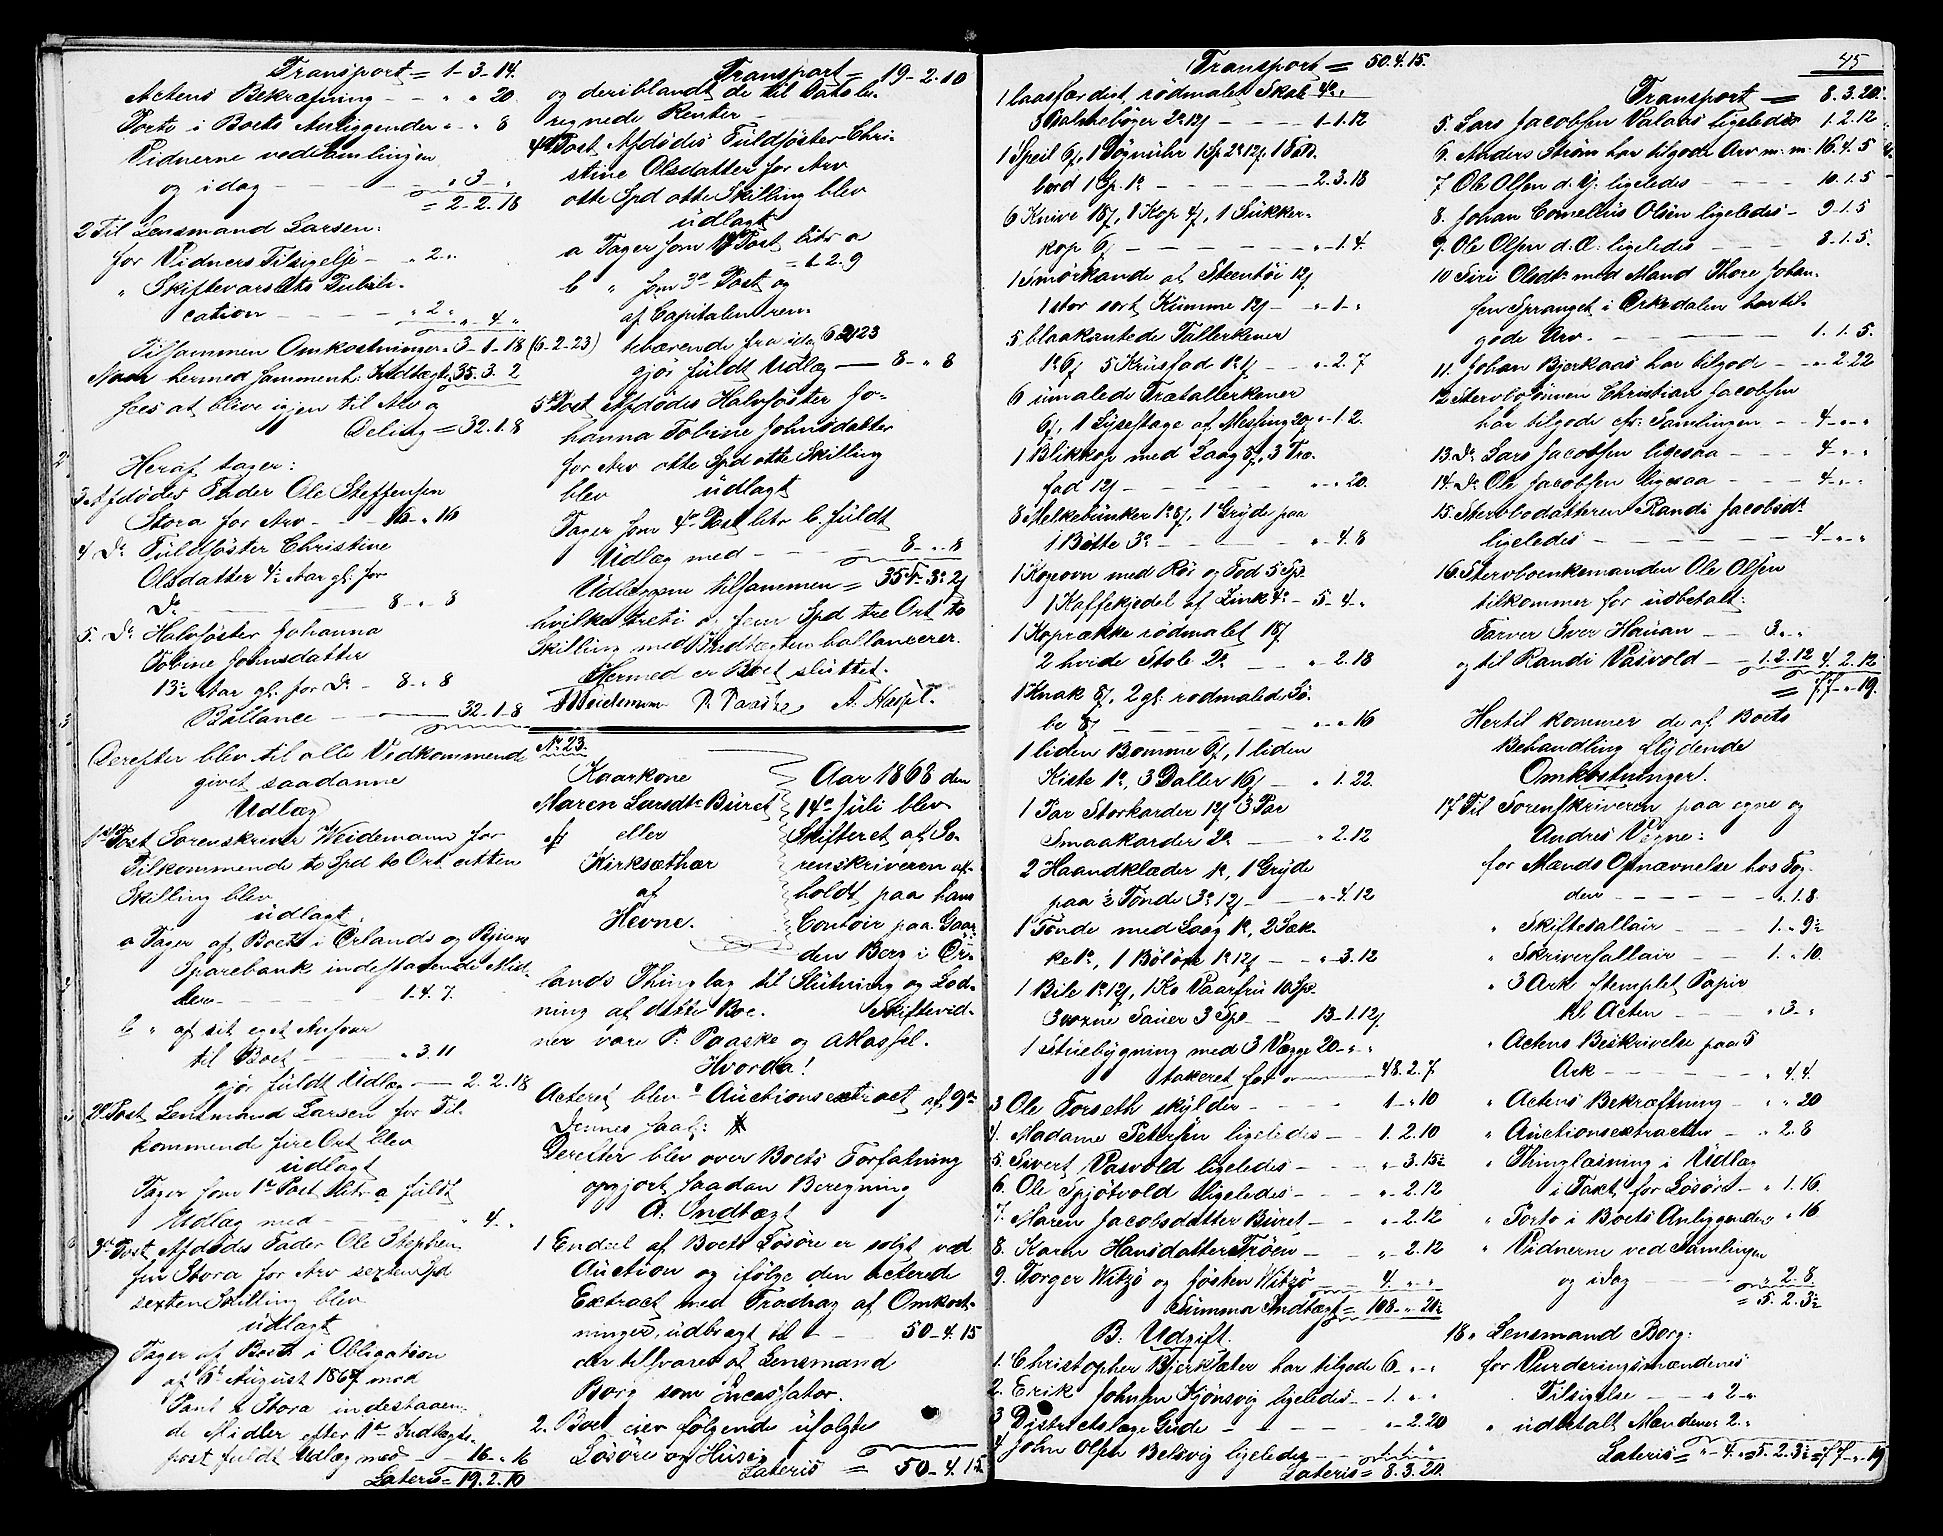 Transport = 1-3-14.
Actens Bekræftning - - " " 20
Porto i Boets Anliggender " " 8
Vidnerne ved Samlingen
og idag - - - - " 3 "
= 2-2-18
2 Til Lensmand Larsen:
for Vidners Tilsigelse - " 2 "
" Skiftevarslets Publi-
cation - - - - " 2 "
" 4 "
Tilsammen Omkostninger 3-1-18
Naar hermed sammenh: Indtægt 35. 3. 2
sees at blive igjen til Arv og
Deling = 32. 1. 8
Heraf tager:
3 Afdødes Fader Ole Steffensen
Stora for Arv - - - 16 - " 16
4 Do Fuldsøster Christine
Olsdatter 4½ Aar gl. for
Do - - - - 8 - " 8
5. Do Halvsøster Johanna
Tobine Johnsdatter
13½ Aar gl. for Do - 8 - " 8
Ballance - - 32-1-8
Derefter blev til alle Vedkommende
givet saadanne
Udlæg
1ste Post Sorenskriver Weidemann for
Tilkommende to Spd to Ort atten
Skilling blev
udlagt:
a Tager af Boets i Ørlands og Bjørns
Sparebank indestaaende Mid-
ler - - - - 1. 4. 7.
b " af sit eget Ansvar
til Boet - - - " 3. 11
gjør fuldt Udlæg - 2. 2. 18
2den Post Lensmand Larsen for Til-
kommende fire Ort blev
udlagt
Tager som 1ste Post Litr a fuldt
Udlæg med - - - " 4 "
3die Post Afdødes Fader Ole Stephen-
sen Stora for Arv sexten Spd
sexten Skilling blev
udlagt
Tager af Boets i Obligation
af 6te August 1867 mod
Pant i Stora indestaaen-
de Midler efter 1ste Indtægts-
post fuldt Udlæg med - 16 - " 16
Lateris = 19. 2. 10
Transport = 19-2-10
og deriblandt de til Dato be-
regnede Renter -
4de Post Afdødes Fuldsøster Chri-
stine Olsdatter for Arv
otte Spd otte Skilling blev
udlagt
a Tager som 1ste Post litr a
= 1-2-9
b " som 3die Post og
af Capitalen ren-
(6-2-23) tebærende fra idag 6 2 23
gjør fuldt Udlæg - 8 - " 8
5te Post Afdødes Halvsøster Jo-
hanna Tobine Johnsdatter
for Arv otte Spd otte Skilling
blev udlagt
Tager som 4de Post litr b. fuldt
Udlæg med - - - 8 - " 8
Udlæggene tilsammen = 35 - 3 - 2
hvilke treti og fem Spd tre Ort to
Skilling med Indtægten ballancerer.
Hermed er Boet sluttet.
Weidemann P. Paaske A. Hassel.
No 23.
Kaarkone
Maren Larsdtr Buret
eller
Kirksæther
af
Hevne.
Aar 1868 den
14de Juli blev
Skifteret af So-
renskriveren af-
holdt paa hans
Contoir paa Gaar-
den Berg i Ør-
lands Thinglag til Slutning og Lod-
ning af dette Boe. Skiftevid-
ner vare P. Paaske og A Hassel.
Hvorda!
Acteret blev Auctionsextract af 9de
Dennes saal:
Derefter blev over Boets Forfatning
opgjort saadan Beregning
A. Indtægt
1 Endeel af Boets Løsøre er solgt ved
Auction og ifølge den acterede
Extract med Fradrag af Omkost-
ninger udbragt til - - 50-4. 15
der tilsvares af Lensmand
Borg som Incassator.
2. Boet eier følgende usolgte
Løsøre og Huse:
Lateris = 50-4. 15
Transport = 50. 4. 15.
1 laasfærdigt, rødmalet Skab 4 "
3 Salmebøger 2. 12 - - - 1-1. 12
1 Speil 6, 1 Bognuhr 1 Sp 2. 12, 1 Fold-
bord 1 Sp. 1 - - - - 2. 3. 18
6 Knive 18, 1 Kop 4, 1 Sukker-
kop 6 - - - - " - 1. 4.
1 Smørkande af Steentøi 12
1 stor sort Kumme 12 - " - 1 - "
5 blaakantede Tallerkener
1. 6 5 Krusfad 1. 1 - - " 2. 7
6 umalede Trætallerkener
6, 1 Lysestage af Messing 20 " - 1. 2.
1 Blikkop med Laag 8, 3 Træ-
fad 12 - - - - " " 20.
8 Melkebunker 1. 8, 1 Gryde paa
1 Bøtte 3 - - - - " 4. 8
1 Kogovn med Rør og Fod 5 Sp.
1 Kaffekjedel af Zink 4 - 5-4-"
1 Koprække rødmalet 18
2 hvide Stole 2 - - " 2. 18
1 Knak 8, 2 gl. rødmalede So-
be 8 - - - - " " 16
1 liden Bomme 6, 1 liden
Kiste 1, 3 Daller 16 - " 1. 22.
1 Par Storkarder 12 3 Par
Smaakarder 2 - - " 2. 12
2 Haandklæder 1, 1 Gryde
paa ½ Tønde 3. 12 - - " - 4. 12
1 Tønde med Laag 1, 2 Sæk-
ke 1, 1 Bøløx 1. 12 - - " - 3. 12
1 Bile 1. 12, 1 Ko Vaarfru 10 Sp.
3 voxne Sauer 3 Sp. - 13-1. 12
1 Stuebygning med 3 Vægge 20 - " - "
takeret for - - 48. 2. 7
3 Ole Forseth skylder - - 1 - " 10
4. Madame Petersen ligeledes - - 1. 2. 10
5. Sivert Vasvold ligeledes - - " - 3. 15½
6. Ole Spjøtvold ligeledes - - " - 2. 12
7. Maren Jacobsdatter Buret - - " - 2. 12
8. Karen Hansdatter Trøen - - " - 2. 12
9. Torger Witzø og Josten Witzø - 4. " "
Summa Indtægt = 108 - " 20½
B. Udgift.
1. Christopher Bjerksæter har tilgode 6 - " - "
2. Erik Johnsen Kjønsvig ligeledes - 1. " "
3 Districtslæge Gude - - - " - 2. 20
4 John Olsen Belsvig ligeledes - -
Lateris = 8. 3. 20.
45
Transport = 8. 3. 20.
5. Lars Jacobsen Valaas ligeledes 1. 2. 12
6. Anders Strøm har tilgode Arv m: m: 16. 4. 5
7 Ole Olsen d. y. ligeledes - - - 10. 1. 5
8. Johan Cornelius Olsen ligeledes - 9. 1. 5
9. Ole Olsen d. Æ. ligeledes - - - 8-1. 5.
10 Siri Olsdtr med Mand Thore Johan-
sen Spranget i Orkedalen har til-
gode Arv. - - - - 1. 1. 5.
11. Johan Bjerkaas har tilgode - - " 2. 22
12 Stervbosønnen Christian Jacobsen
har tilgode efr: Samlingen - - 4 - " - "
13. Do Lars Jacobsen ligesaa - - - 4 - " - "
14. Do Ole Jacobsen ligesaa - - - 4 - " - "
15. Stervbodatteren Randi Jacobsdtr
ligeledes - - - - 4 - " - "
16. Stervboenkemanden Ole Olsen
tilkommer for udbetalt:
Farver Iver Hauan - - 3. " "
og til Randi Vasvold - - 1. 2. 12 4. 2. 12
= 77 - " 19.
Hertil kommer de af Boets
Behandling flydende
Omkostninger.
17 Til Sorenskriveren paa egne og
Andres Vegne:
for Mænds Opnævnelse hos Fog-
den - - - - " 1. 8.
" Skiftesallair - - - 1. " 9½
" Skriversallair - - - 1. " 10.
" 3 Ark stemplet Papir
til Acten - - - " 3 - "
" Actens Beskrivelse paa 5
Ark - - - - " 4. 4.
" Actens Bekræftning - - " " 20
" Auctionsextracten - - " 2. 8
" Thinglæsning i Udlæg
i Takt for Løsøre - " 1. 16.
" Porto i Boets Anliggender " " 16
" Vidnerne ved Samlingen
og idag - - - " 2. 8.
= 5. 2. 3½
18 " Lensmand Borg:
for Vurderingsmændenes
Tilsigelse - - " 2 - "
" udbetalt Mændene 2. "
Lateris = " - 4. = 5. 2. 3½ = 77 - " 19